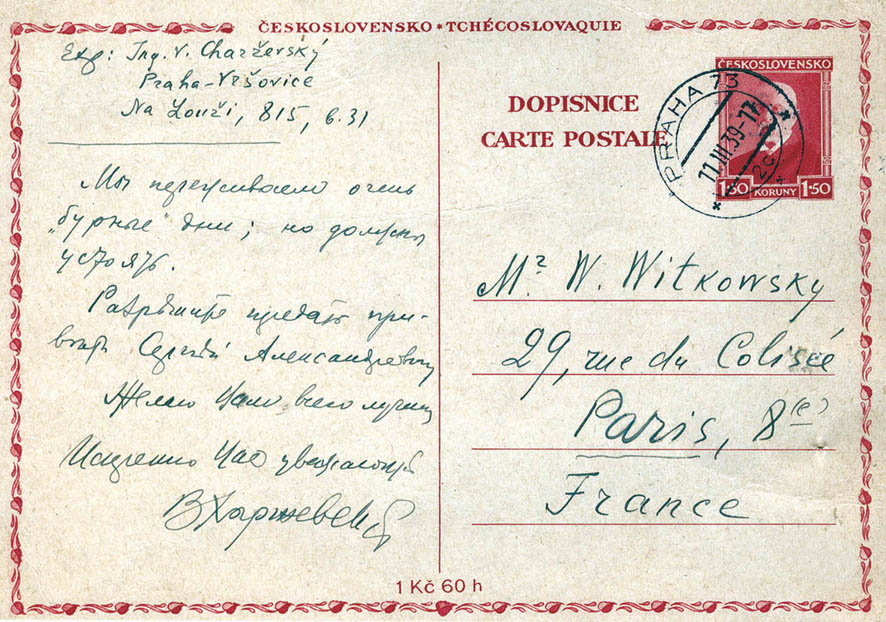 ČESKOSLOVENSKO * TCHÉCOSLOVAQUIE
Exp: Ing. V. Charževský
Praha-Vršovice
Na Louži, 815, č. 31
Мы переживаем очень
„бурные" дни; но должны
устоять.
Разрѣшите передать при-
вѣтъ Сергѣю Александровичу
Желаю Вамъ всего лучшаго
Искренно Васъ уважающій
ВХаржевскій
DOPISNICE
CARTE POSTALE
ČESKOSLOVENSKO
1·50 KORUNY 1·50
PRAHA 73
11.III.39-17
* 2c *
Mr W. Witkowsky
29, rue du Colisée
Paris, 8(e)
France
1 Kč 60 h